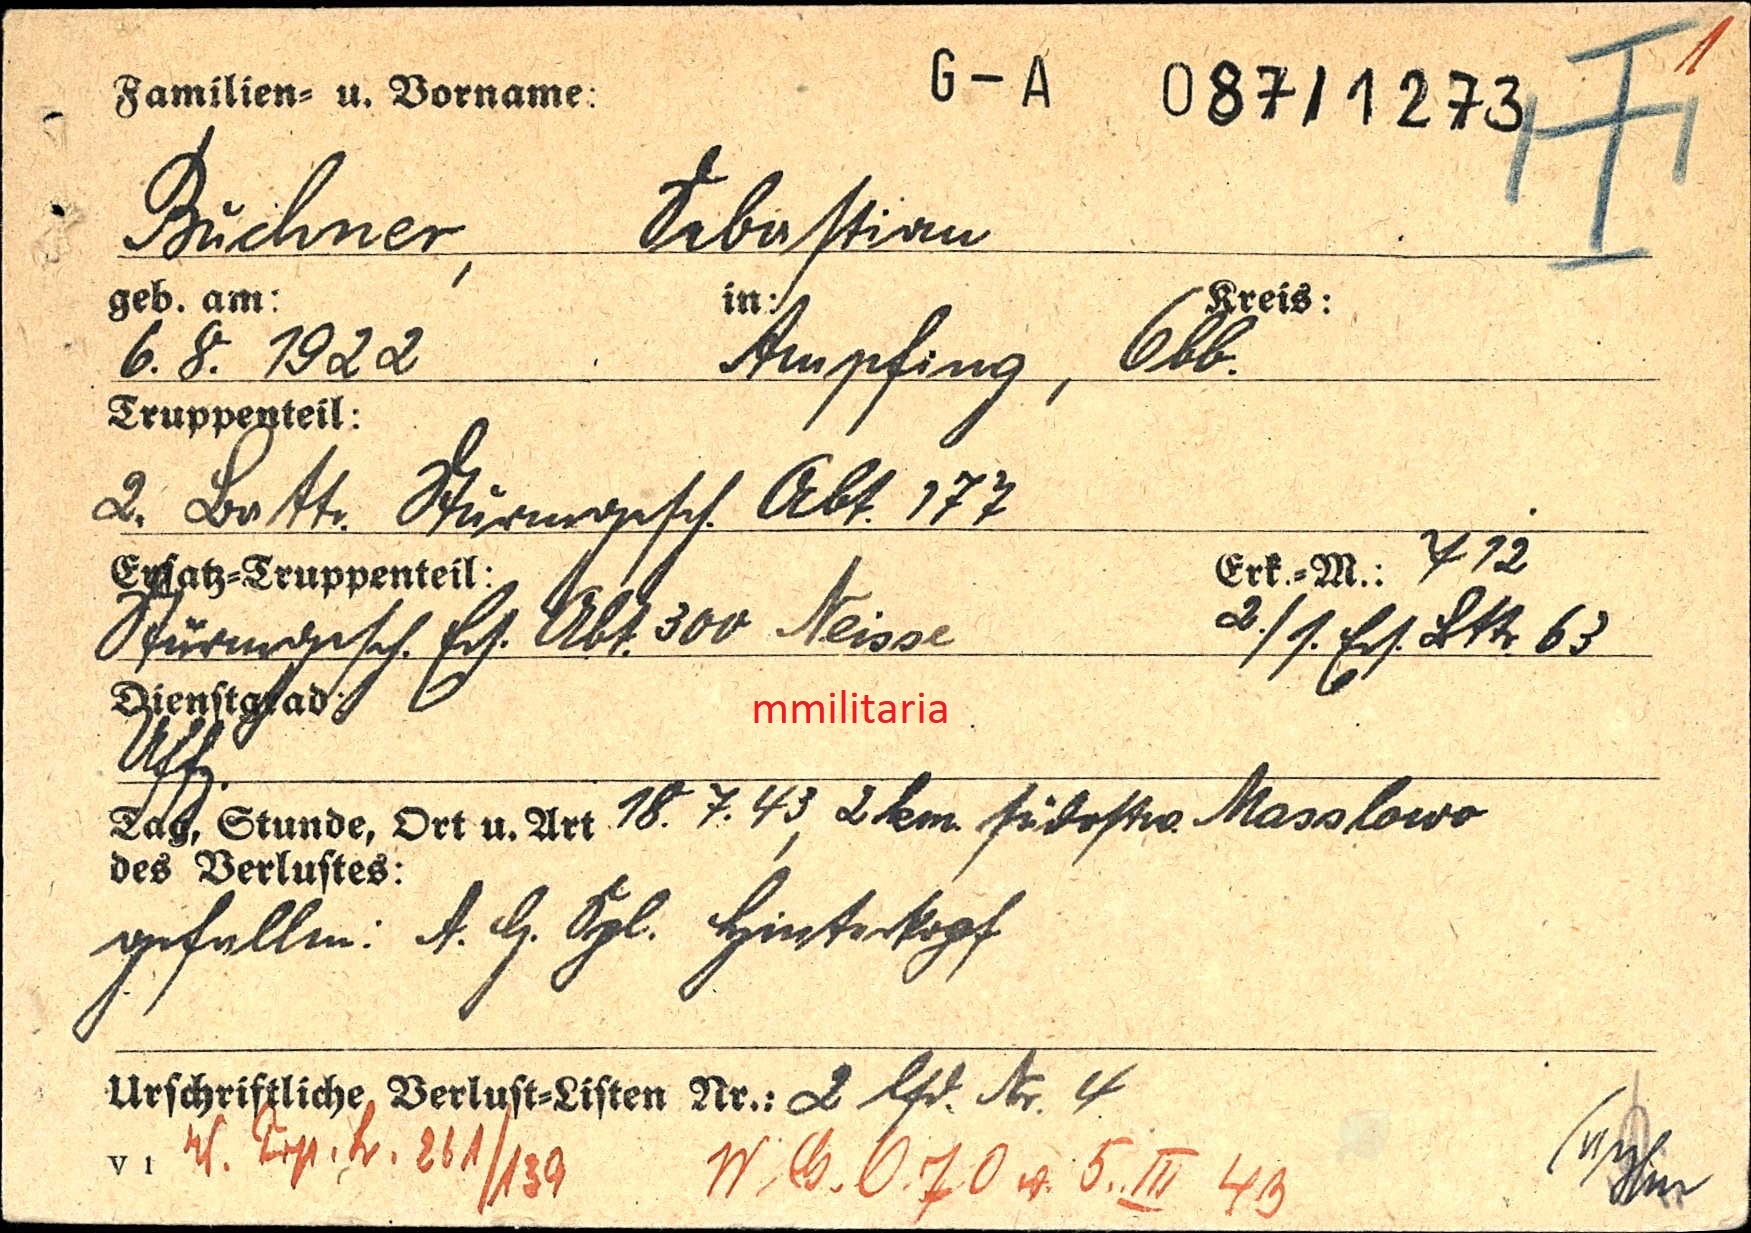 G-A 087/1273 1
Familien- u. Vorname:
Büchner, Sebastian
geb. am: in: Kreis:
6.8. 1922 Ampfing, Obb.
Truppenteil:
2. Battr. Sturmgesch. Abt. 177
Ersatz-Truppenteil: Erk.-M.: 712
Sturmgesch. Ers. Abt. 300 Neisse 2./1. Ers. Bttr 63
Dienstgrad:
Uffz.
mmilitaria
Tag, Stunde, Ort u. Art 18.7.43, 2 km. südostw. Masslowo
des Verlustes:
gefallen: A. G. Spl. Hinterkopf
Urschriftliche Verlust-Listen Nr.: 2 lfd. Nr. 4
V 1 261/139 5. III 43